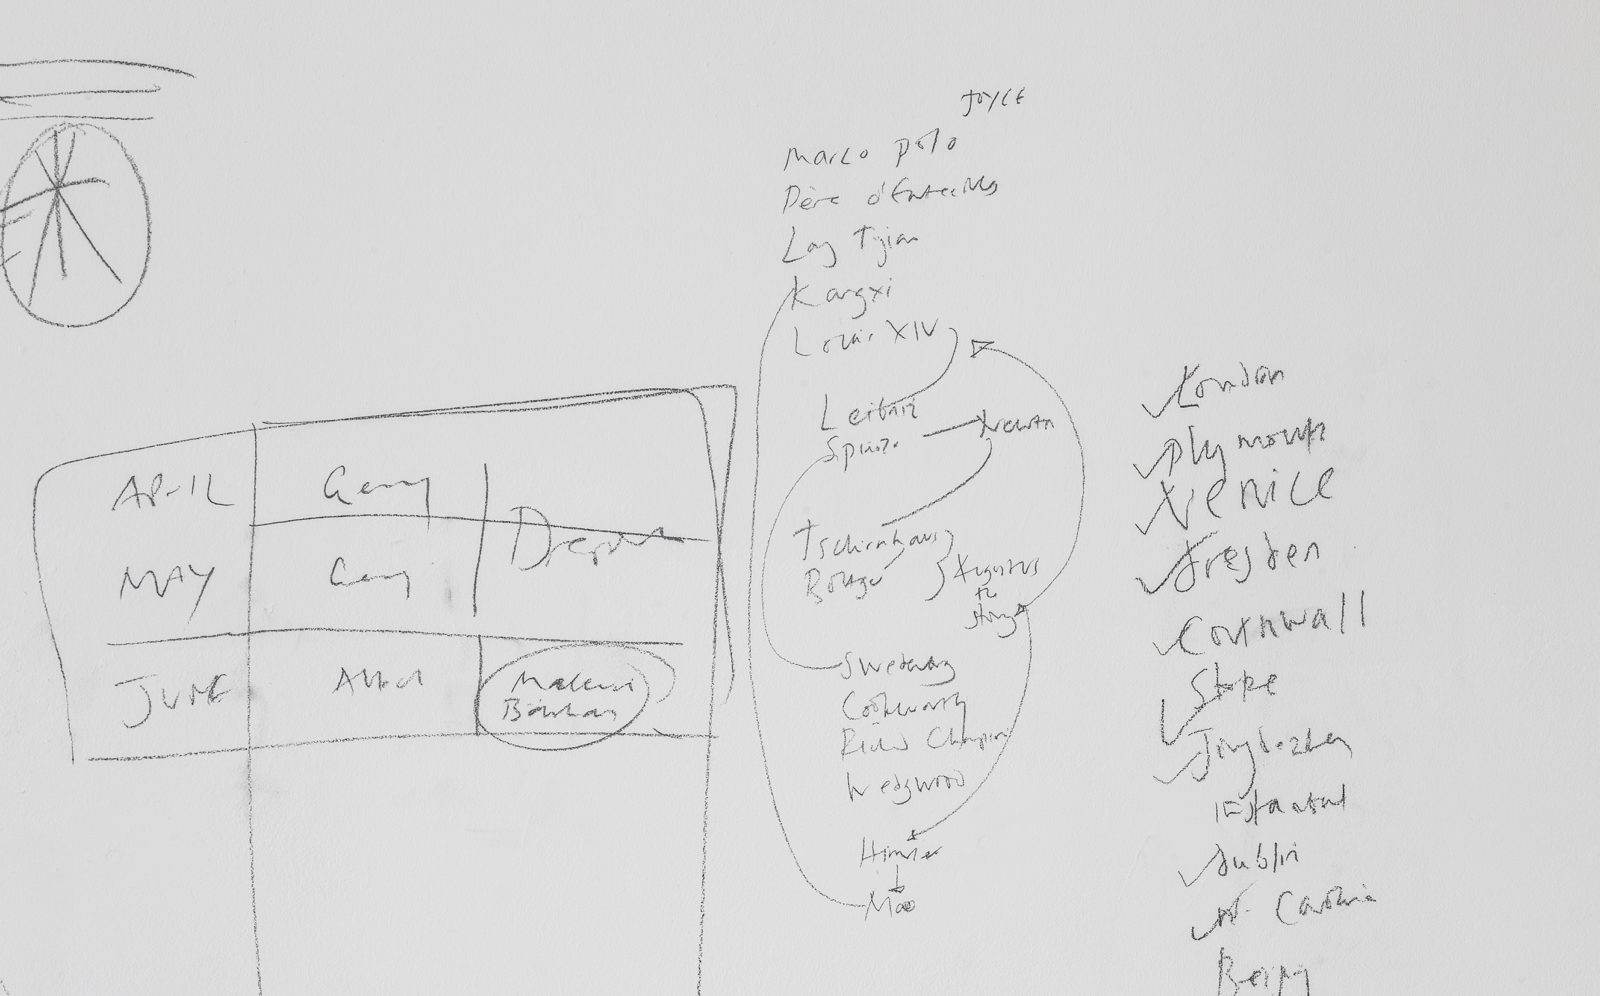 JOYCE
Marco Polo
Père d'Entrecolles
Kangxi
Louis XIV
Leibniz
Spinoza
Newton
Tschirnhaus
Böttger
Augustus
the
Strong
Swedenborg
Cookworthy
Richd Champion
Wedgwood
Himmler
Mao
APRIL
MAY
Dresden
JUNE
London
Plymouth
Venice
Dresden
Cornwall
Stoke
Jingdezhen
Istanbul
Dublin
N. Carolina